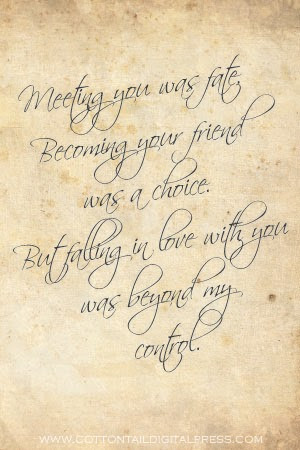 Meeting you was fate,
Becoming your friend
was a choice.
But falling in love with you
was beyond my
control.
WWW.COTTONTAILDIGITALPRESS.COM